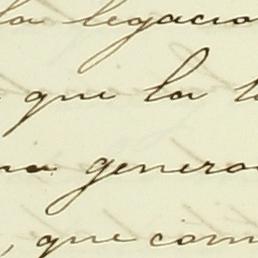 la legacio
que la
genera
, que com